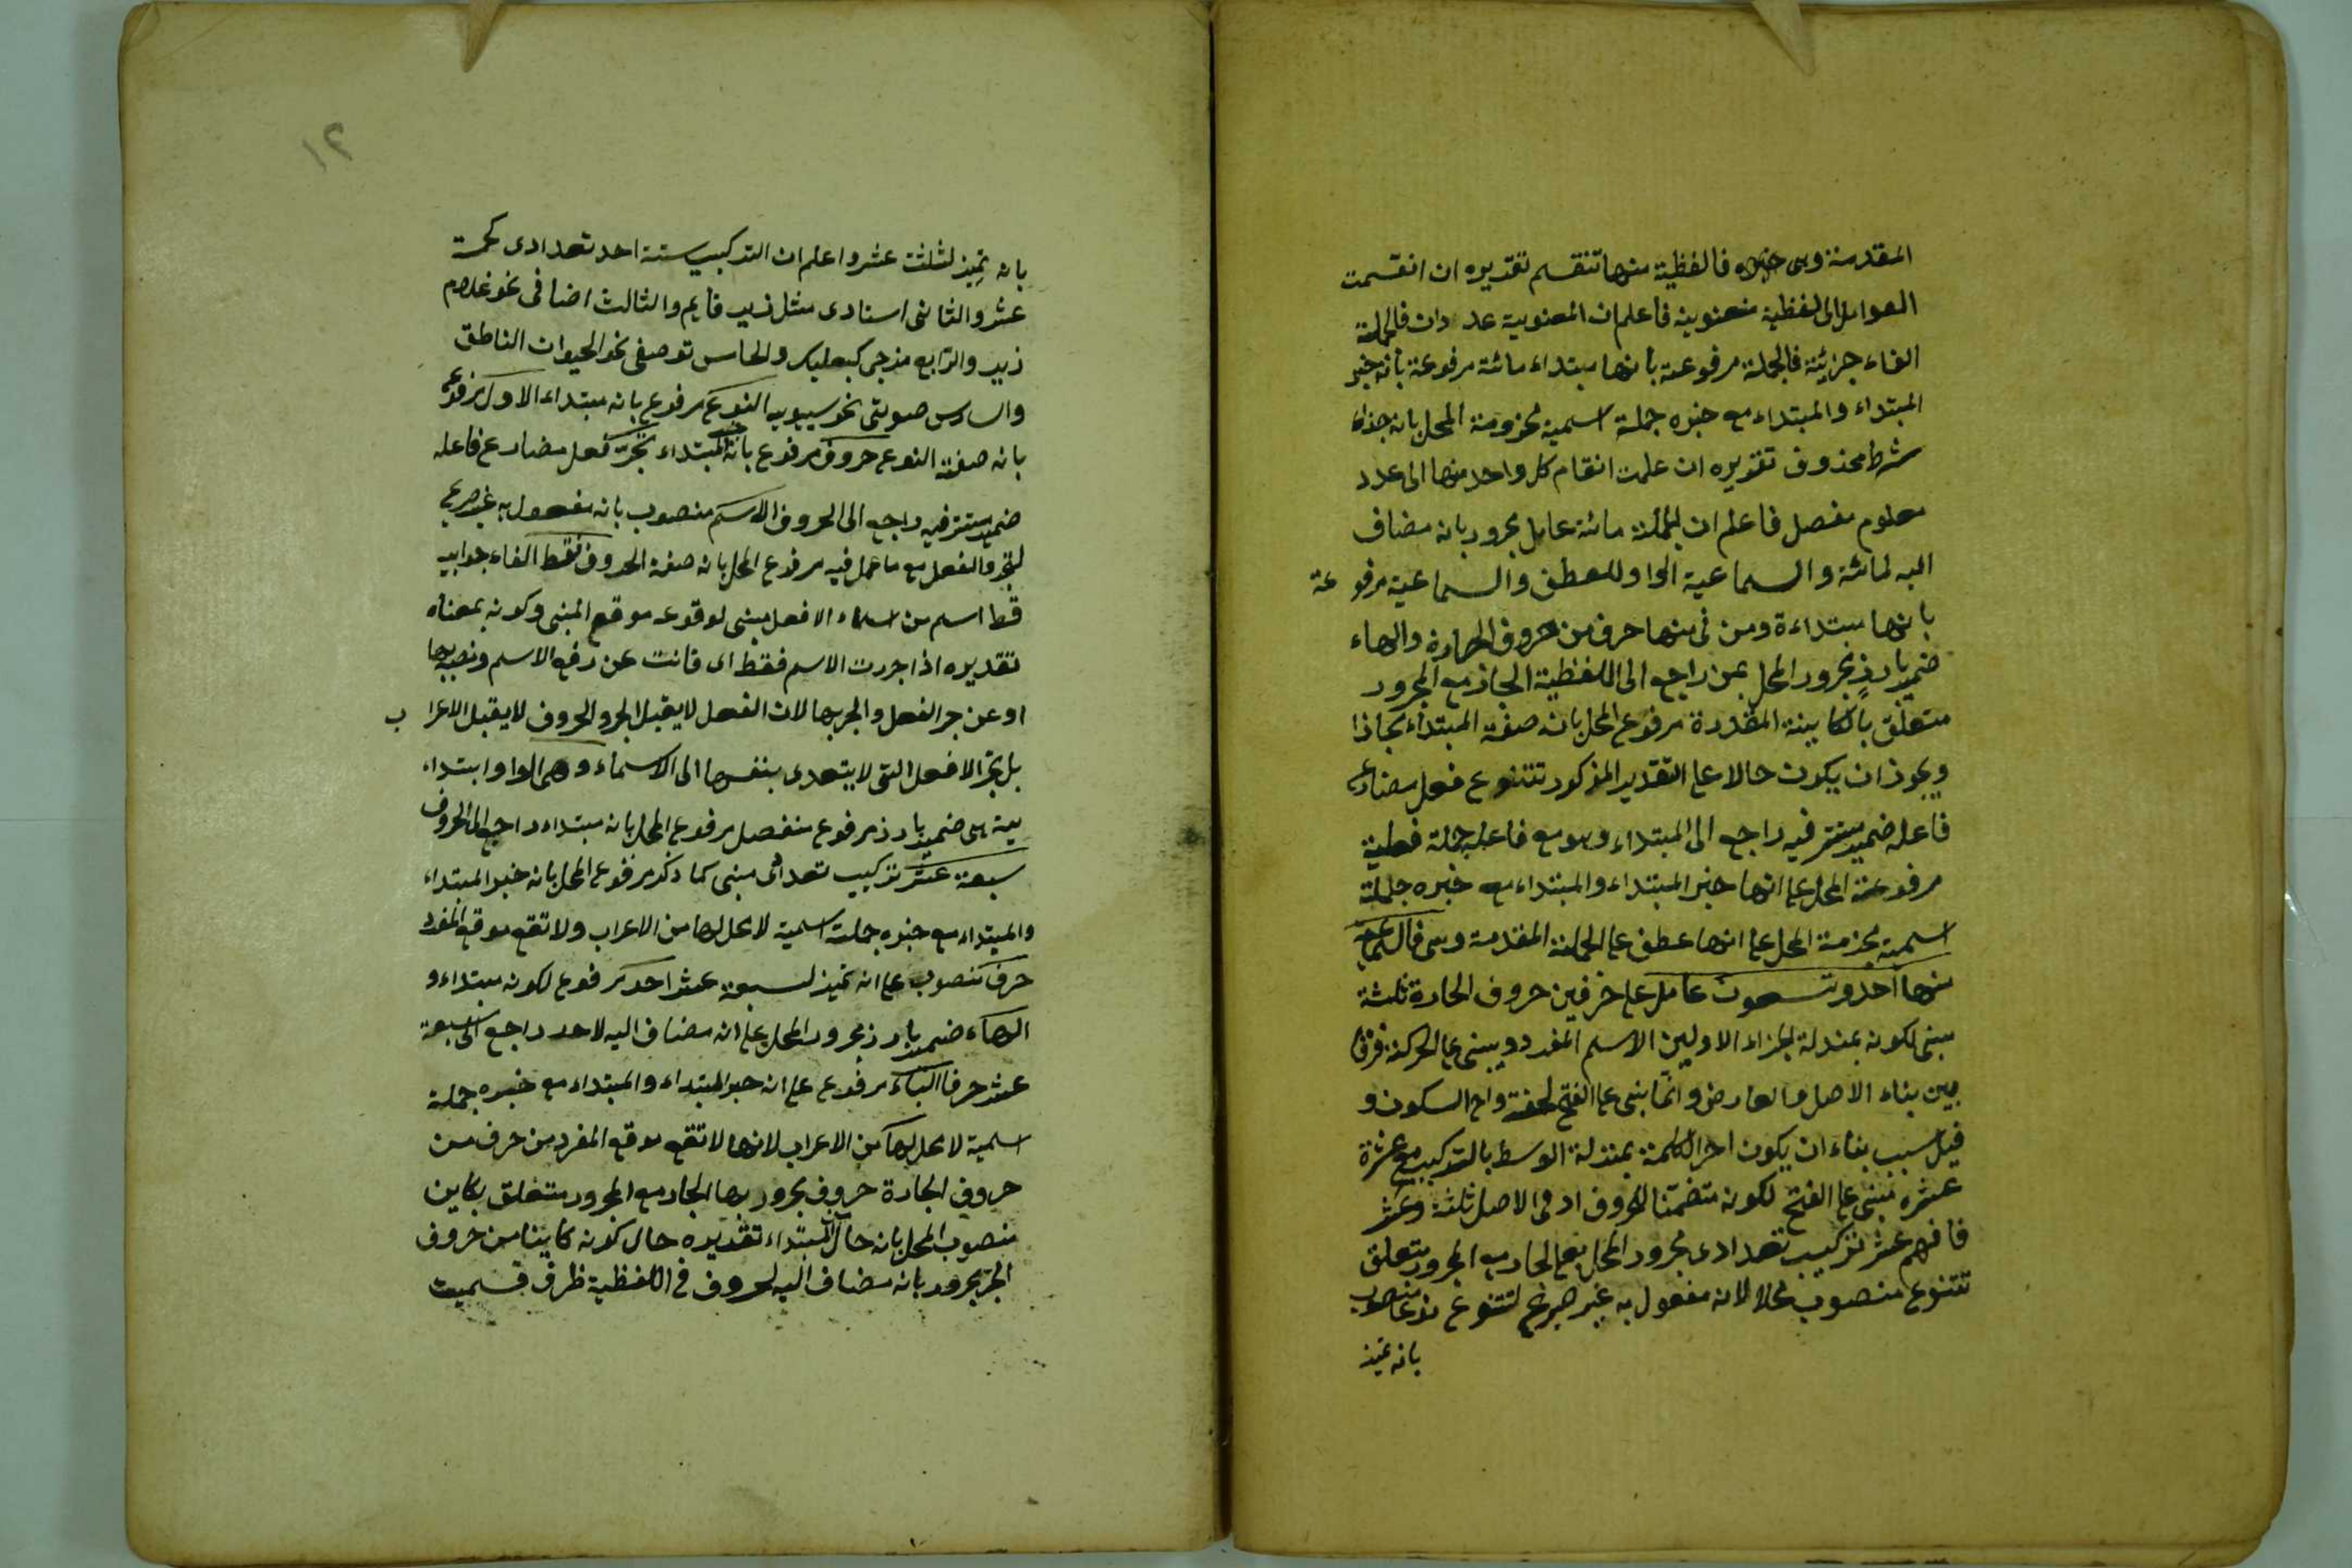 المقدمة وهى خبره فالفظية منها تنقسم تقديره ان انقسمت
العوامل الى لفظية معنوية فاعلم ان المعنوية عددان فالجملة
الفاء جزئية فالجملة مرفوعة بأنها مبتداء مائة مرفوعة بأنه خبر
المبتداء والمبتداء مع خبره جملة اسمية مجزومة المحل بانه جزاء
شرط محذوف تقديره ان علمت انقام كل واحد منها الى عدد
معلوم مفصل فاعلم ان الجملة مائة عامل مجرور بانه مضاف
اليه لمائة والسماعية الواو للعطف والسماعية مرفوعة
بانها مبتداءة ومن فى منها حرف من حروف الجارة والهاء
ضمير بارز مجرور المحل بمن راجع الى اللفظية الجار مع المجرور
متعلق بالكاينة المقدرة مرفوع المحل بانه صفة المبتداء
ويجوز ان يكون حالا على التقدير المذكور تتنوع فعل مضارع
فاعله ضمير مستتر فيه راجع الى المبتداء وهو مع فاعله جملة فعلية
مرفوعة المحل على انها خبر المبتداء والمبتداء مع خبره جملة
اسمية مجزمة المحل على انها عطف على الجملة المقدمة وهى فالسماعية
منها احد وتسعون عاملا على حروف الجارة ثلثة
مبنى لكونه بمنزلة الجزاء الاولين الاسم المفرد ويبنى على الحركة فرقا
بين بناء الاصل والعارض وانما بنى على الفتح لخفته واخ السكون و
قيل سبب بناء ان يكون اخر الكلمة بمنزلة الوسط بالتركيب مع عشرة
عشره مبنى على الفتح لكونه متضمنا للحروف اذ فى الاصل ثلثة وعشر
فافهم عشر تركيب تعدادى مجرور المحل بعلى الجار مع المجرور متعلق
تتنوع منصوب محلا لانه مفعول به غير صريح لتتنوع نوعا منصوب
بانه تميز
١٢
بانه تميز لثلثة عشر واعلم ان التركيب ستة احد تعدادى كخمسة
عشر والثانى اسنادى مثل زيد قايم والثالث اضافى نحو غلام
زيد والرابع مزجى كبعلبك والخامس توصفى نحو الحيوان الناطق
والسادس صوتى نحو سيبويه النوع مرفوع بانه مبتداء الاول مرفوع
بانه صفة النوع حروف مرفوع بانه خبر المبتداء تجر فعل مضارع فاعله
ضمير مستتر فيه راجع الى الحروف الاسم منصوب بانه مفعول به غير صريح
لتجر والفعل مع ما عمل فيه مرفوع المحل بانه صفة الحروف فقط الفاء جوابيه
قط اسم من اسماء الافعل مبنى لوقوعه موقع المبنى وكونه بمعناه
تقديره اذا جررت الاسم فقط اى فانت عن رفع الاسم ونصبه بها
او عن جر الفعل والجر بها لان الفعل لا يقبل الجر والحروف لا يقبل الاعراب
بل تجر الافعل التى لا يتعدى بنفسها الى الاسماء وهى الواو ابتداء
يية هى ضمير بارز مرفوع منفصل مرفوع المحل بانه مبتداء راجع الى الحروف
سبعة عشر تركيب تعدادى مبنى كما ذكر مرفوع المحل بانه خبر المبتداء
والمبتداء مع خبره جملة اسمية لا محل لها من الاعراب ولا تقع موقع المفرد
حرفا منصوب على انه تميز لسبعة عشر احد مرفوع لكونه مبتداء و
الهاء ضمير بارز مجرور المحل على انه مضاف اليه لاحد راجع الى سبعة
عشر حرفا الباء مرفوع على انه خبر المبتداء والمبتداء مع خبره جملة
اسمية لا محل لها من الاعراب لانها لا تقع موقع المفرد من حرف من
حروف الجارة حروف مجرور بها الجار مع المجرور متعلق بكاين
منصوب المحل بانه حال المبتداء تقديره حال كونه كاينا من حروف
الجر مجرور بانه مضاف اليه لحروف فى اللفظية ظرف قسميت